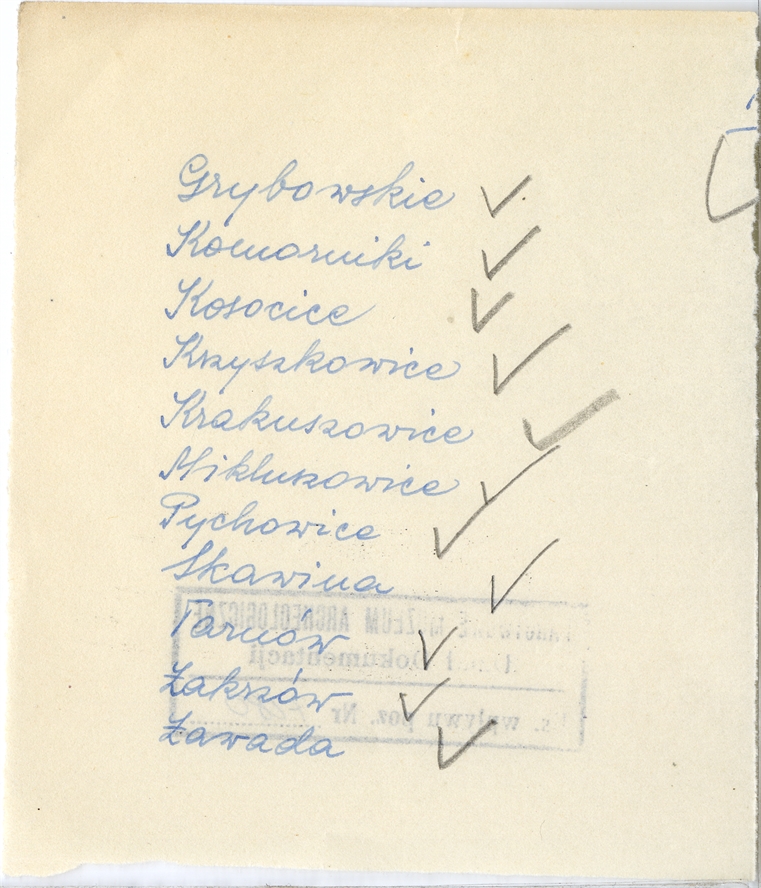 Grybowskie
Komorniki
Kosocice
Krzyszkowice
Krakuszowice
Mikluszowice
Pychowice
Skawina
Tarnów
Zakrzów
Zawada
PAŃSTWOWE MUZEUM ARCHEOLOGICZNE
Dział Dokumentacji
Ks. wpływu poz. Nr